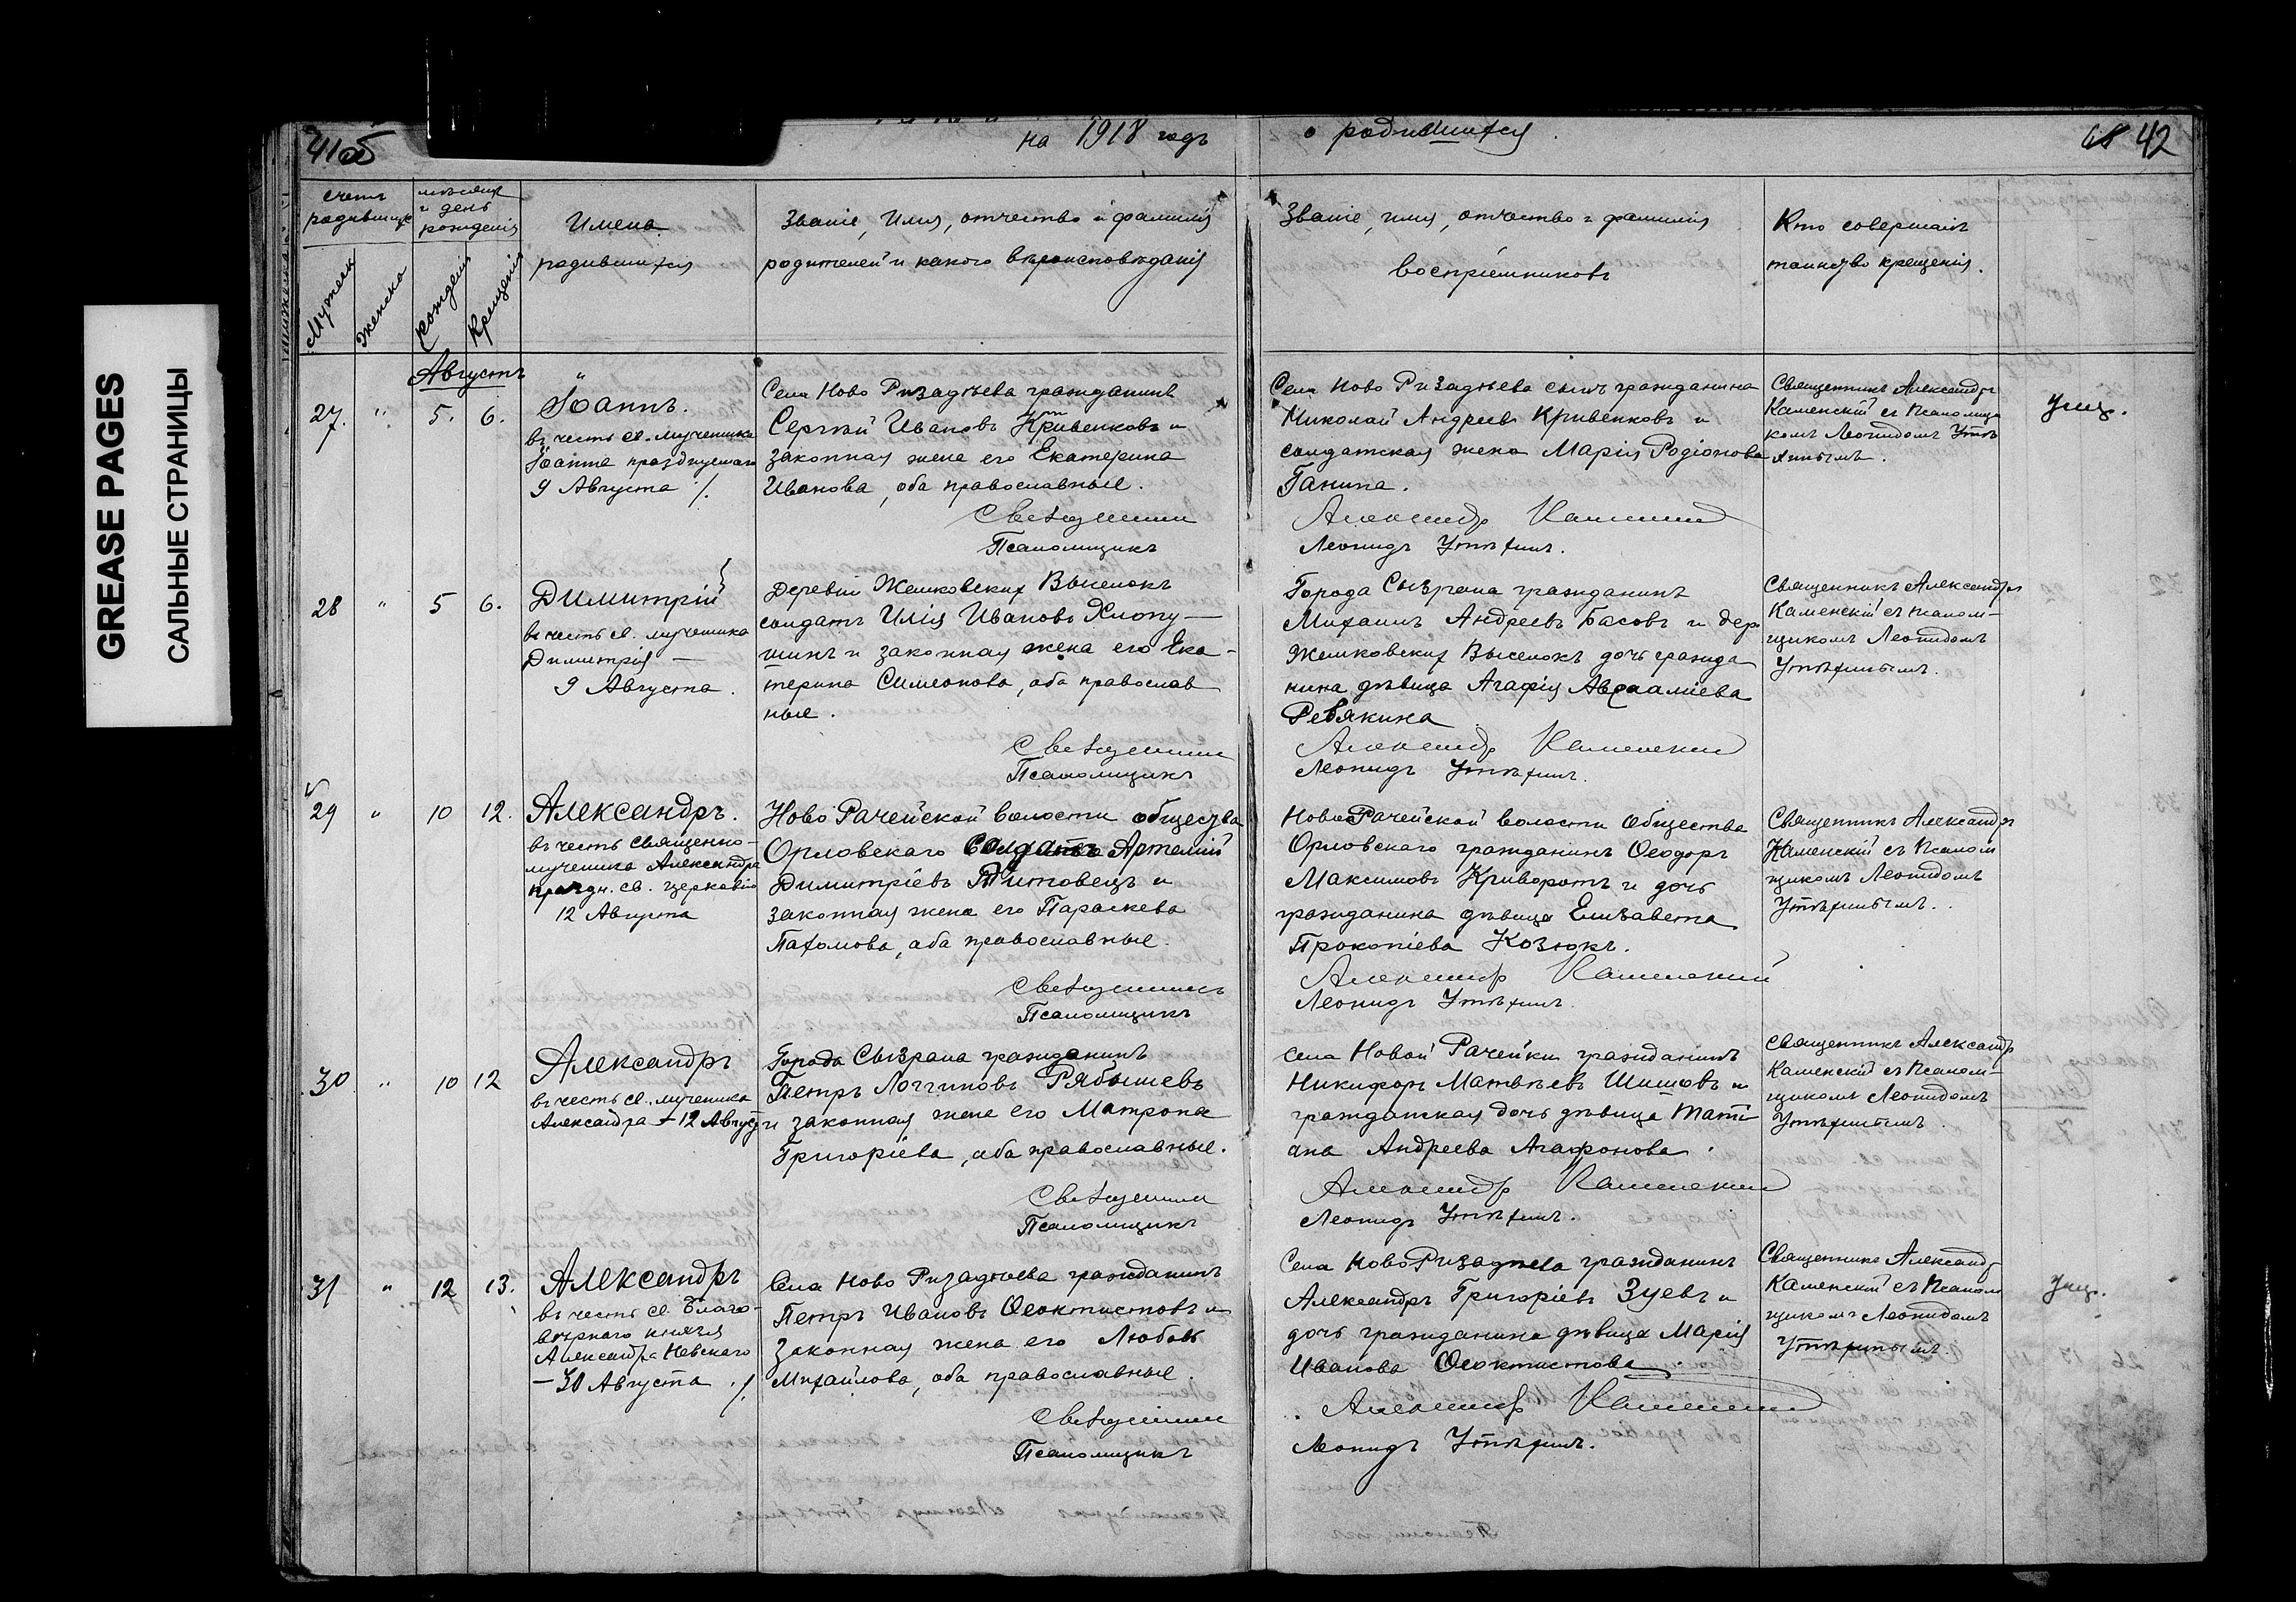 GREASE PAGES
САЛЬНЫЕ СТРАНИЦЫ
41об
на 1918 годъ
о родившихся
42
счетъ
родившихся
мѣсяцъ
и день
рожденія
Мужеск
Женска
Рожденія
Крещенія
Имена
родившихся
Званіе, Имя, отчество и фамилія
родителей и какого вѣроисповѣданія
Званіе, имя, отчество и фамилія
воспріемниковъ
Кто совершалъ
таинство крещенія.
Августъ
27. " 5. 6.
Іоаннъ.
въ честь св. мученика
Іоанна празднуемаго
9 Августа
Села Ново Ризадѣева гражданинъ
Сергій Ивановъ Кривенковъ и
законная жена его Екатерина
Иванова, оба православные.
Псаломщикъ
Села Ново Ризадѣева сынъ гражданина
Николай Андреевъ Кривенковъ и
солдатская жена Марія Родіонова
Ганина.
Александр Каменский
Леонидъ Утѣхинъ.
Священникъ Александръ
Каменскій съ псаломщи
комъ Леонидомъ Утѣ
хинымъ.
28 " 5 6.
Димитрій
въ честь св. мученика
Димитрія —
9 Августа.
Деревни Жемковскихъ Выселокъ
солдатъ Илія Ивановъ Хлопу—
шинъ и законная жена его Ека-
терина Симеонова, оба православ
ные.
Псаломщикъ
Города Сызрана гражданинъ
Михаилъ Андреевъ Басовъ и дер.
Жемковскихъ Выселокъ дочь гражда
нина дѣвица Агафія Авраамiева
Ревякина
Александр Каменский
Леонидъ Утѣхинъ.
Священникъ Александръ
Каменскій съ псалом—
щикомъ Леонидомъ
Утѣхинымъ.
29 " 10 12.
Александръ.
въ честь священно-
мученика Александра
праздн. св. церковію
12 Августа
Ново Рачейской волости общества
Орловскаго Солдатъ Артемій
Димитріевъ Титовецъ и
законная жена его Параскева
Пахомова, оба православные.
Псаломщикъ
Ново Рачейской волости Общества
Орловскаго гражданинъ Ѳеодоръ
Максимовъ Криворотъ и дочь
гражданина дѣвица Елизавета
Прокопіева Козюкъ.
Александр Каменский
Леонидъ Утѣхинъ.
Священникъ Александръ
Каменскій съ Псалом
щикомъ Леонидомъ
Утѣхинымъ.
30 " 10 12
Александръ
въ честь св. мученика
Александра — 12 Август
Города Сызрана гражданинъ
Петръ Логгиновъ Рябышевъ
и законная жена его Матрона
Григоріева, оба православные.
Псаломщикъ
Села Новой Рачейки гражданинъ
Никифоръ Матвѣевъ Шишовъ и
гражданская дочь дѣвица Татi
ана Андреева Агафонова.
Александр Каменский
Леонидъ Утѣхинъ.
Священникъ Александръ
Каменскій съ Псалом—
щикомъ Леонидомъ
Утѣхинымъ.
31 " 12 13.
Александръ
въ честь св. Благо-
вѣрнаго князя
Александра Невскаго
— 30 Августа
Села Ново Ризадѣева гражданинъ
Петръ Ивановъ Ѳеоктистовъ и
Законная жена его Любовь
Михайлова, оба православные.
Псаломщикъ
Села Ново Ризадѣева гражданинъ
Александръ Григоріевъ Зуевъ и
дочь гражданина дѣвица Марія
Иванова Ѳеоктистова.
Александр Каменский
Леонидъ Утѣхинъ.
Священникъ Александр
Каменскій съ Псалом
щикомъ Леонидомъ
Утѣхинымъ.